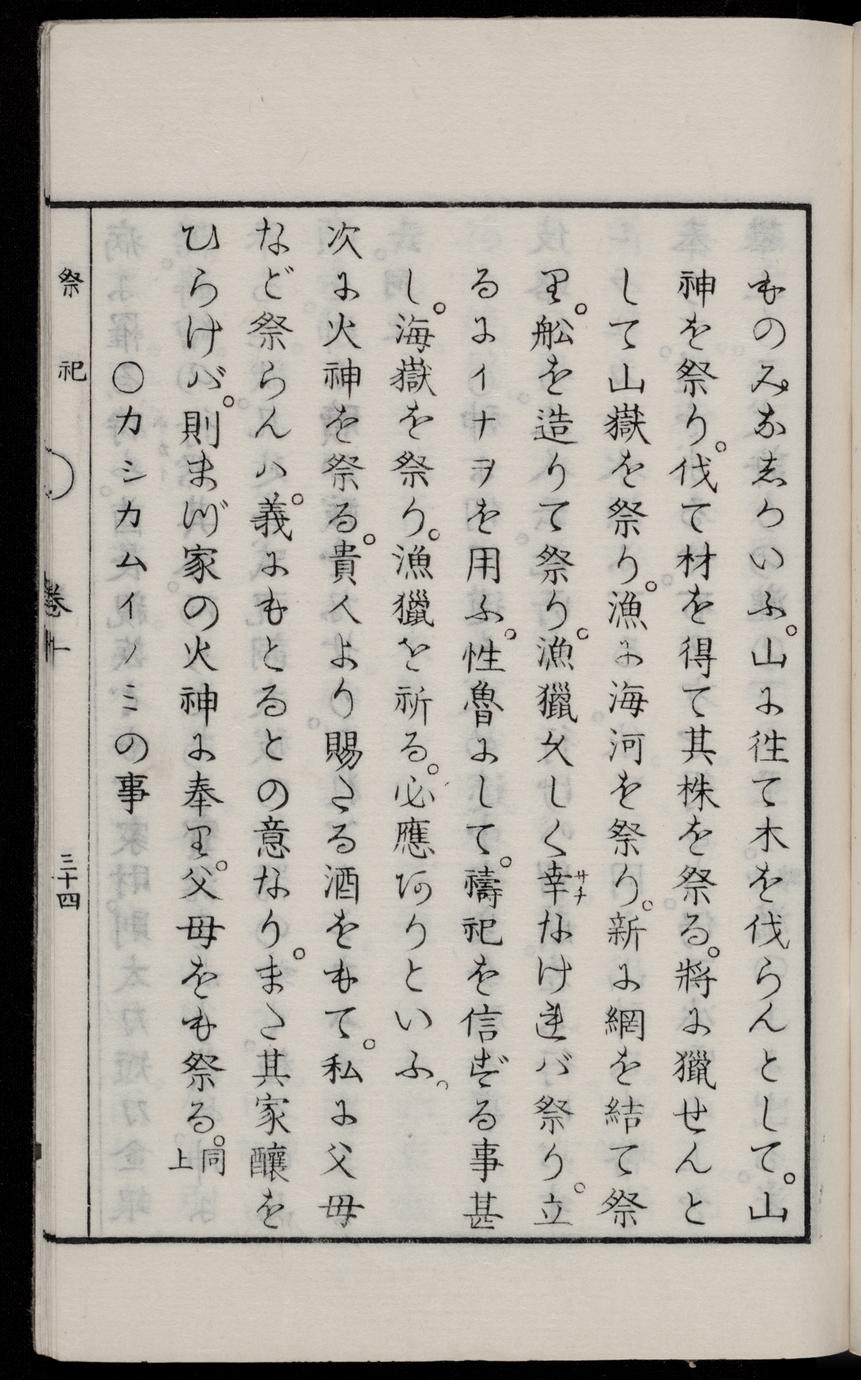 ものみなしかいふ。山に往て木を伐らんとして。山
神を祭り。伐て材を得て其株を祭る。將に獵せんと
して山嶽を祭り。漁に海河を祭り。新に網を結て祭
り。舩を造りて祭り。漁獵久しく幸なければ祭り。立
サチ
るにイナヲを用ふ。性魯にして。禱祀を信ずる事甚
し。海嶽を祭り。漁獵を祈る。必應ありといふ。
次に火神を祭る。貴人より賜たる酒をもて。私に父母
など祭らんハ義。にもとるとの意なり。また其家釀を
ひらけバ。則まづ家の火神に奉り。父母をも祭る。同上
〇カシカムイノミの事
祭祀
卷十
三十四